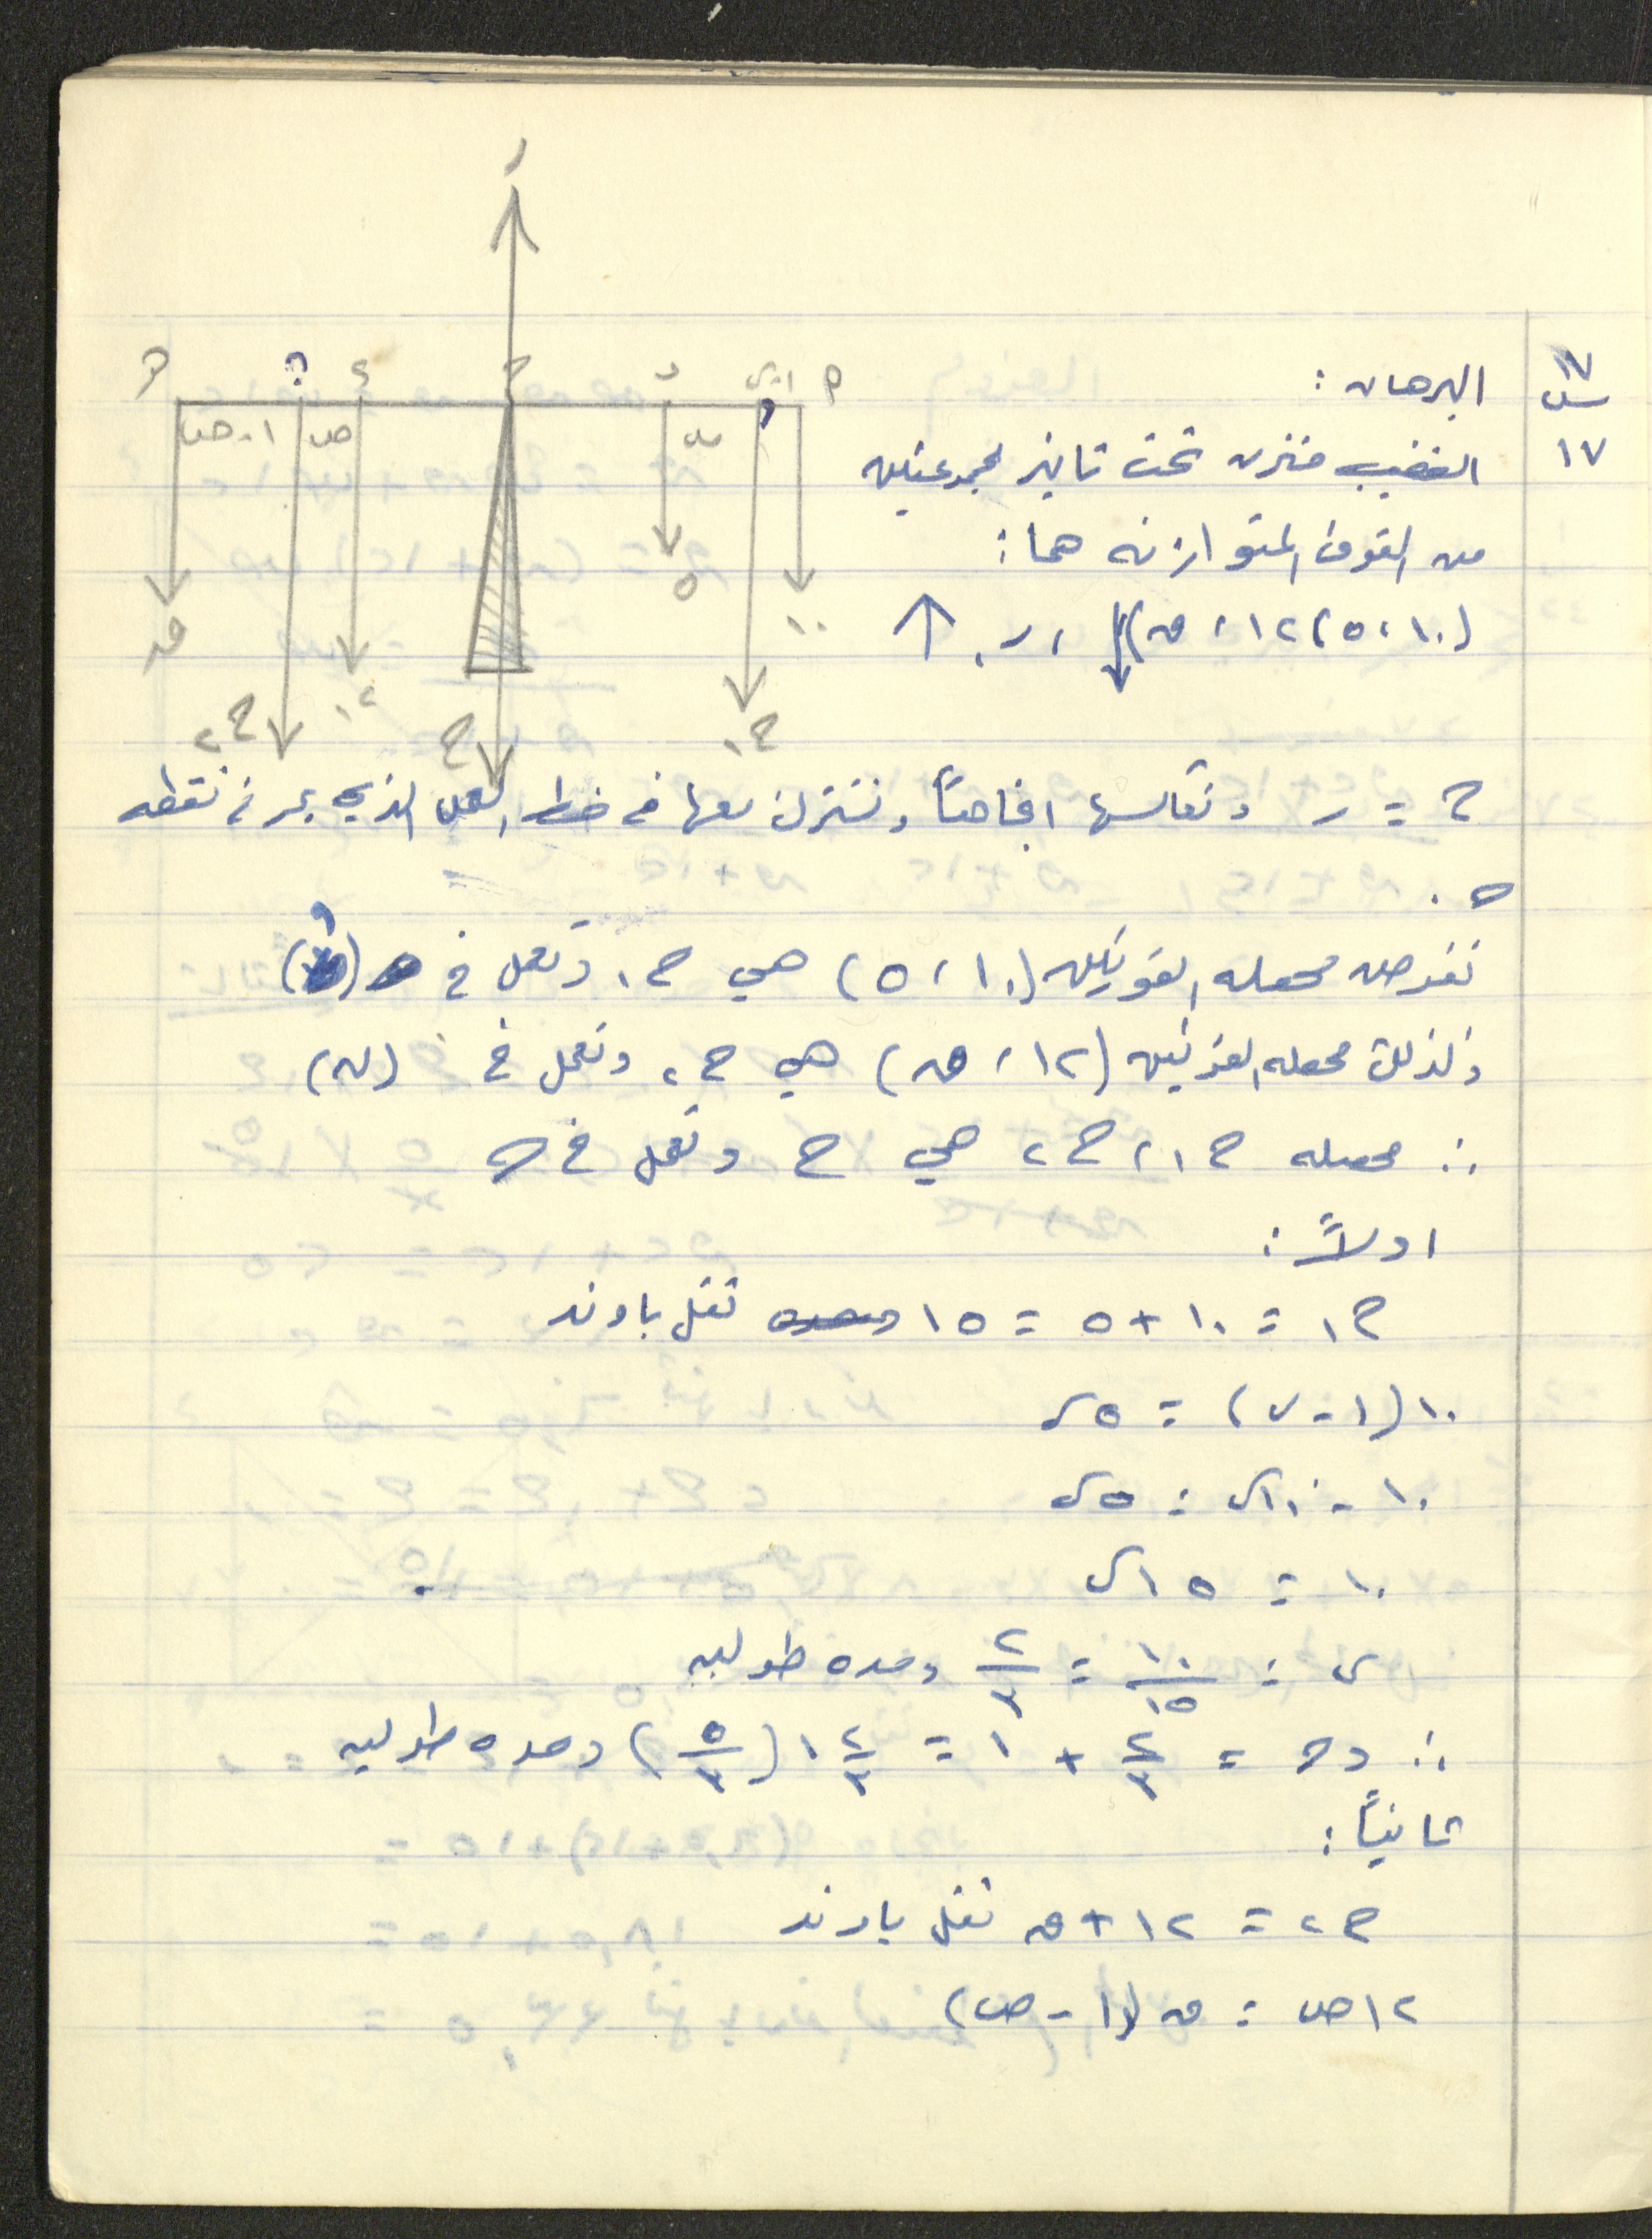 ١٧
س
١٧
البرهان :
القضيب متزن تحت تأثير مجموعتين
من القوى المتوازنه هما :
(١٠، ٥، ١٢، ق) ↓ ، ر ↑
ح = ر وتعاكسها اتجاهاً وتشترك معها في خط العمل الذي يمر في نقطه
ح .
نفرض محصله القوتين (١٠، ٥) هي ح١ وتعمل في (و)
وكذلك محصله القوتين (١٢، ق) هي ح٢ وتعمل في (ن)
∴ محصله ح١، ح٢ هي ح وتعمل في ح
اولاً :
ح١ = ١٠ + ٥ = ١٥ ثقل باوند
١٠ (١ - س) = ٥س
١٠ - ١٠س = ٥س
١٠ = ١٥س
س = ١٠/١٥ = ٢/٣ وحده طوليه
∴ وح = ٢/٣ + ١ = ١ ٢/٣ (٥/٣) وحده طوليه
ثانياً :
ح٢ = ١٢ + ق ثقل باوند
١٢ص = ق (١ - ص)